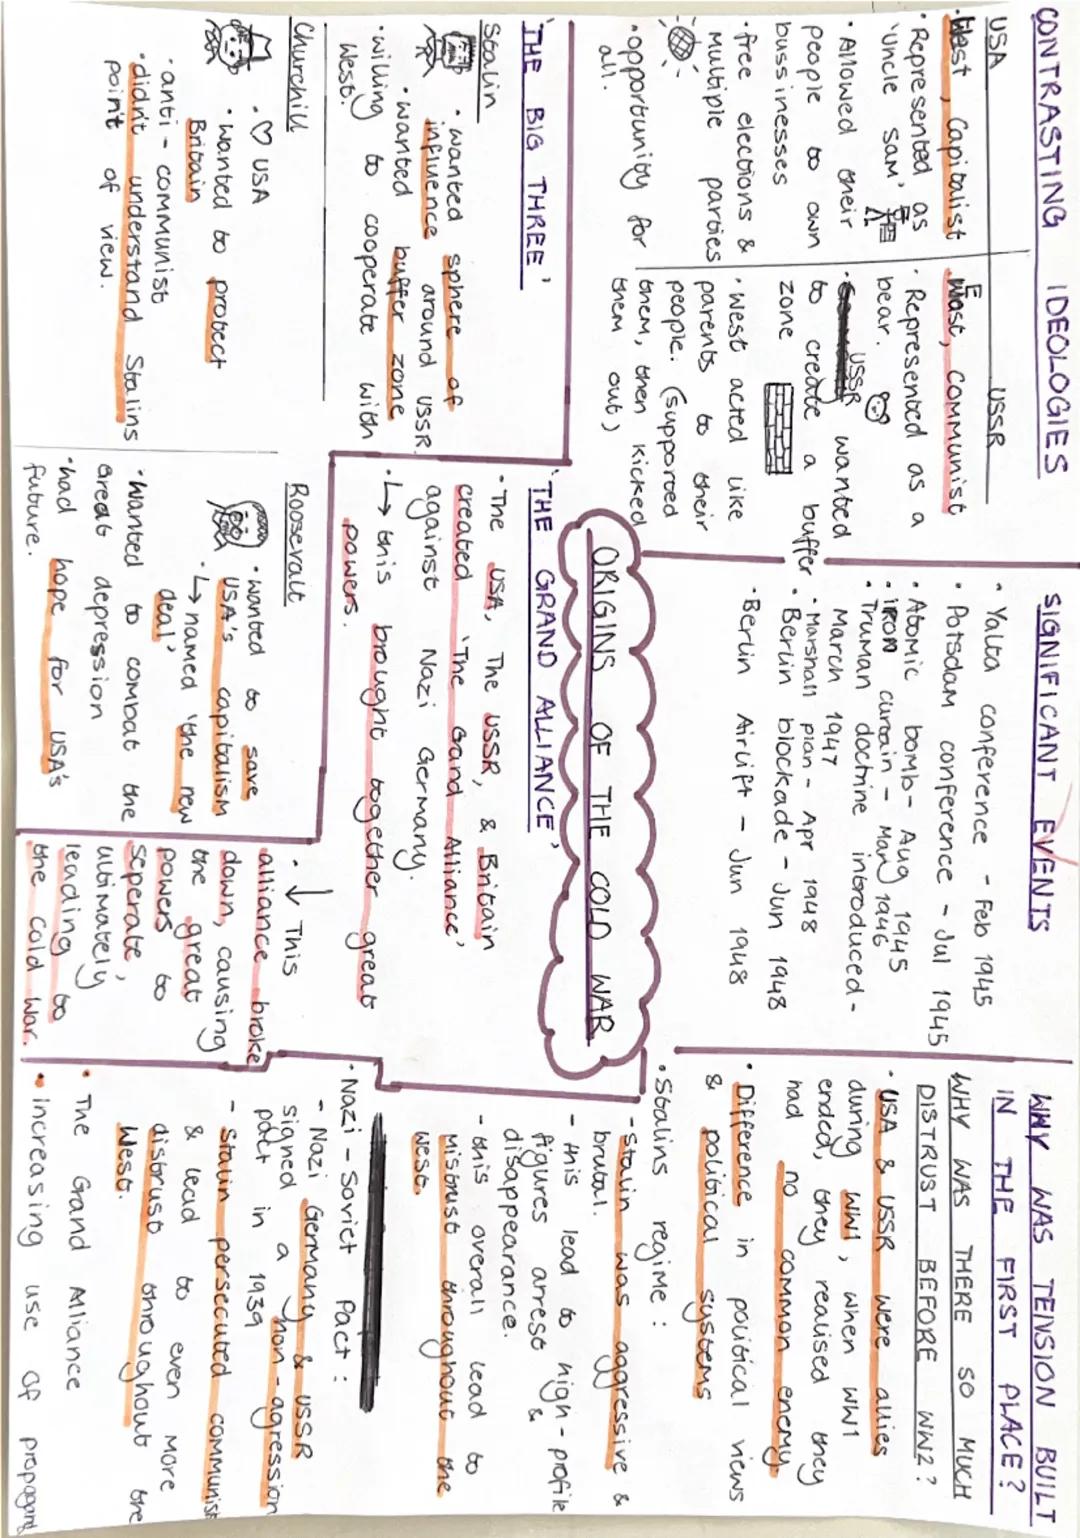 CONTRASTING IDEOLOGIES
USA
West, Capitalist
• Represented as
'Uncle Sam'
• Allowed their
people to own
bussinesses
• free elections &
multiple parties
• opportunity for
all.
USSR
East, Communist
• Represented as a
bear.
• USSR wanted
to create a buffer
zone
• West acted like
parents to their
people. (supported
them, then kicked
them out)
SIGNIFICANT EVENTS
• Yalta conference - Feb 1945
• Potsdam conference - Jul 1945
• Atomic bomb - Aug 1945
• iron curtain - May 1946
• Truman doctrine introduced -
March 1947
• Marshall plan - Apr 1948
• Berlin blockade - Jun 1948
• Berlin Airlift - Jun 1948
WHY WAS TENSION BUILT
IN THE FIRST PLACE?
WHY WAS THERE SO MUCH
DISTRUST BEFORE WW2?
• USA & USSR were allies
during WW1, when WW1
ended, they realised they
had no common enemy.
• Difference in political views
& political systems
• Stalins regime:
- stalin was aggressive &
brutal.
- this lead to high-profile
figures arrest &
disappearance.
- this overall lead to
mistrust throughout the
west.
• Nazi-Soviet Pact:
- Nazi Germany & USSR
signed a non-agression
pact in 1939
- Stalin persecuted communist
& lead to even more
distrust throughout the
West.
• The Grand Alliance
• increasing use of propagand
ORIGINS OF THE COLD WAR
'THE BIG THREE'
Stalin
• wanted sphere of
influence around USSR.
• wanted buffer zone
• willing to cooperate with
West.
Churchill
• ♡ USA
• wanted to protect
Britain
• anti-communist
• didn't understand Stalins
point of view.
Rooseralt
• wanted to save
USA's capitalism
• ↳ named 'the new
deal'
• Wanted to combat the
great depression
• had hope for USA's
future.
'THE GRAND ALLIANCE'
• The USA, The USSR, & Britain
created 'The Grand Alliance'
against Nazi Germany.
• ↳ this brought together great
powers.
• ↓ This
alliance broke
down, causing
the great
powers to
seperate,
ultimately
leading to
the cold war.